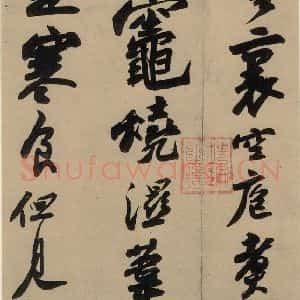 裏空庖煮
竈燒濕葦
是寒食但見
Shufawang.CN